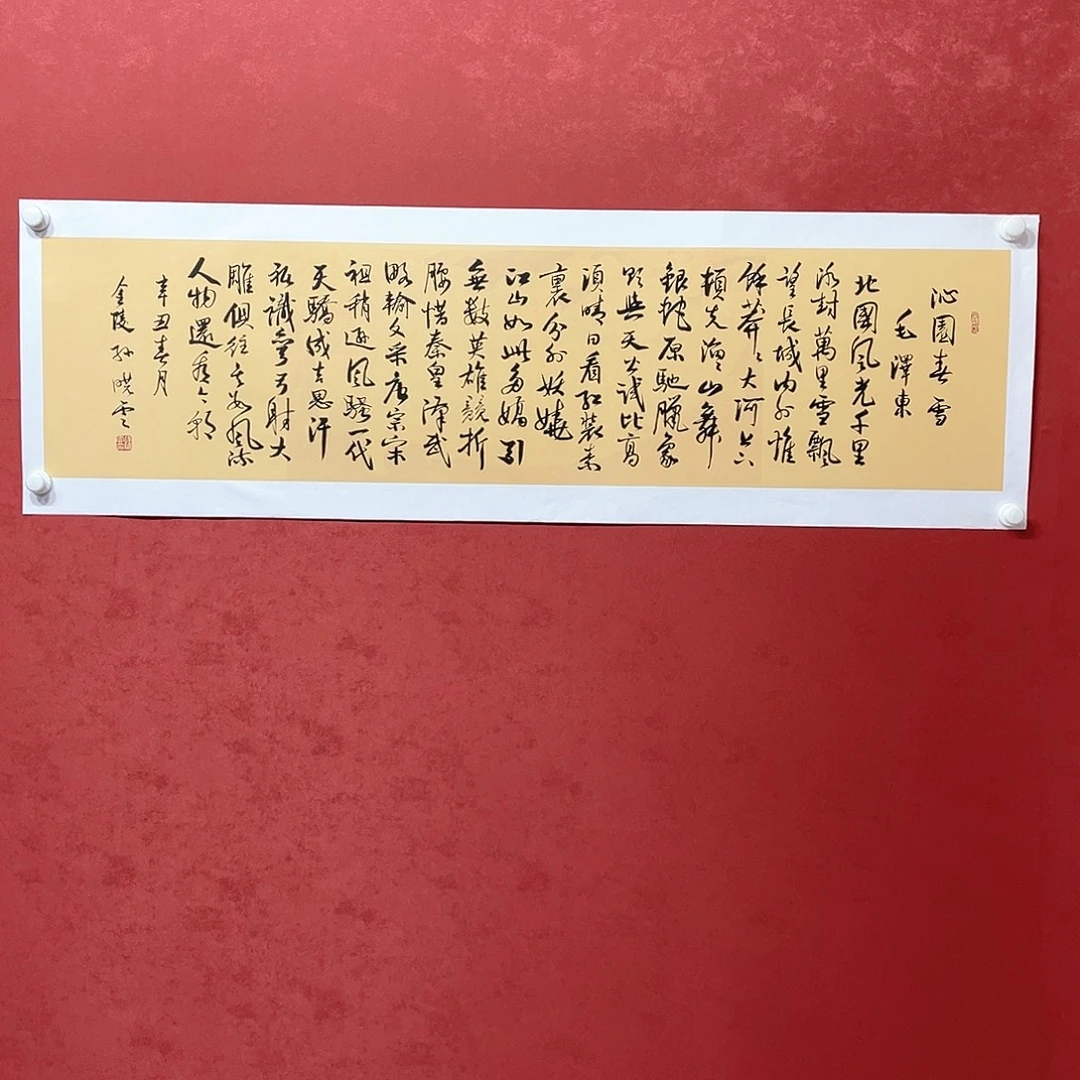 沁園春雪
毛澤東
北國風光千里
冰封萬里雪飄
望長城內外惟
餘莽〻大河上下
頓失滔〻山舞
銀蛇原馳臘象
欲與天公試比高
須晴日看紅裝素
裹分外妖嬈
江山如此多嬌引
無數英雄競折
腰惜秦皇漢武
略輸文采唐宗宋
祖稍遜風騷一代
天驕成吉思汗
祇識彎弓射大
雕俱往矣數風流
人物還看今朝
辛丑春月
金陵孫曉雲